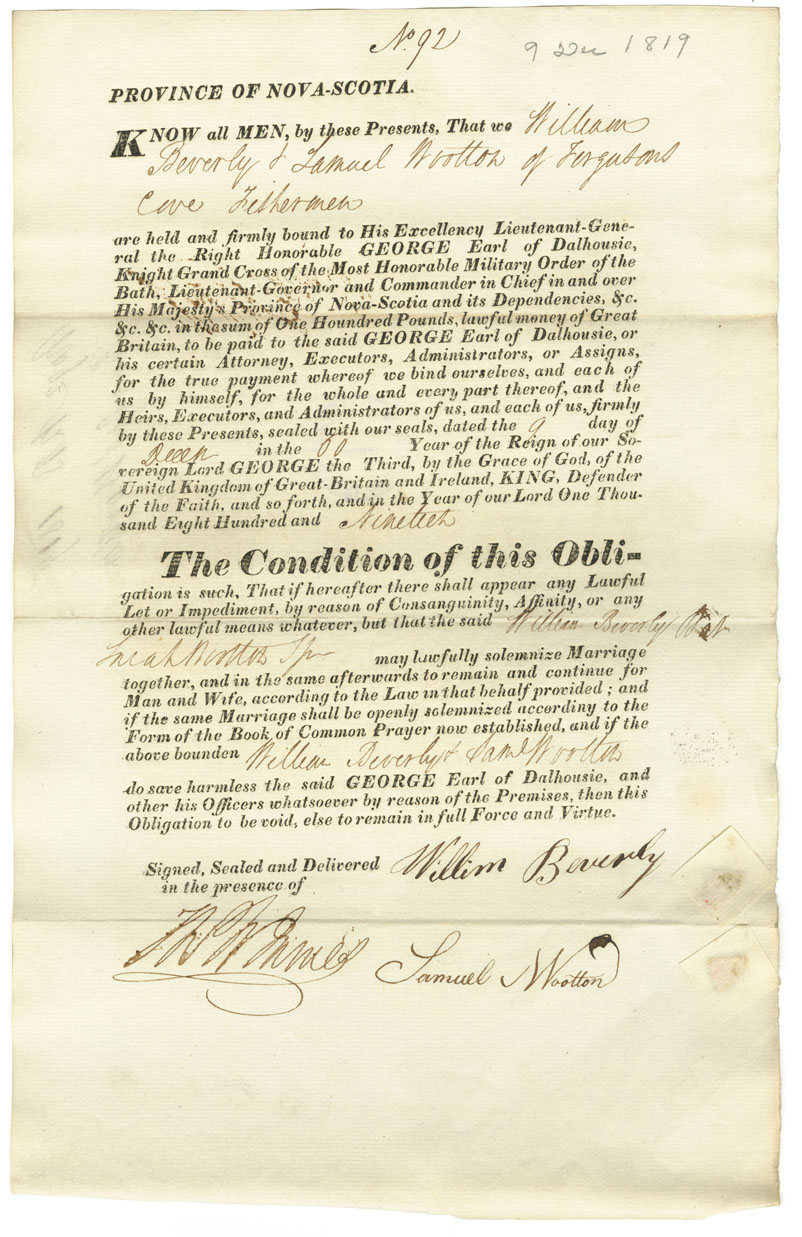 No. 92
9 Dec 1819
PROVINCE OF NOVA-SCOTIA.
KNOW all MEN, by these Presents, That we William
Beverly & Samuel Wootton of Fergusons
Cove Fishermen
are held and firmly bound to His Excellency Lieutenant-Gene-
ral the Right Honorable GEORGE Earl of Dalhousie,
Knight Grand Cross of the Most Honorable Military Order of the
Bath, Lieutenant-Governor and Commander in Chief in and over
His Majesty's Province of Nova-Scotia and its Dependencies, &c.
&c. &c. in the sum of One Houndred Pounds, lawful money of Great
Britain, to be paid to the said GEORGE Earl of Dalhousie, or
his certain Attorney, Executors, Administrators, or Assigns,
for the true payment whereof we bind ourselves, and each of
us by himself, for the whole and every part thereof, and the
Heirs, Executors, and Administrators of us, and each of us, firmly
by these Presents, sealed with our seals, dated the 9 day of
in the 60 Year of the Reign of our So-
vereign Lord GEORGE the Third, by the Grace of God, of the
United Kingdom of Great-Britain and Ireland, KING, Defender
of the Faith, and so forth, and in the Year of our Lord One Thou-
sand Eight Hundred and Nineteen
The Condition of this Obli-
gation is such, That if hereafter there shall appear any Lawful
Let or Impediment, by reason of Consanguinity, Affinity, or any
other lawful means whatever, but that the said William Beverly
Wootton Spr may lawfully solemnize Marriage
together, and in the same afterwards to remain and continue for
Man and Wife, according to the Law in that behalf provided ; and
if the same Marriage shall be openly solemnized accordiny to the
Form of the Book of Common Prayer now established, and if the
above bounden William Beverly & Saml Wootton
do save harmless the said GEORGE Earl of Dalhousie, and
other his Officers whatsoever by reason of the Premises, then this
Obligation to be void, else to remain in full Force and Virtue.
Signed, Sealed and Delivered
in the presence of
Willim Beverly
Samuel Wootton